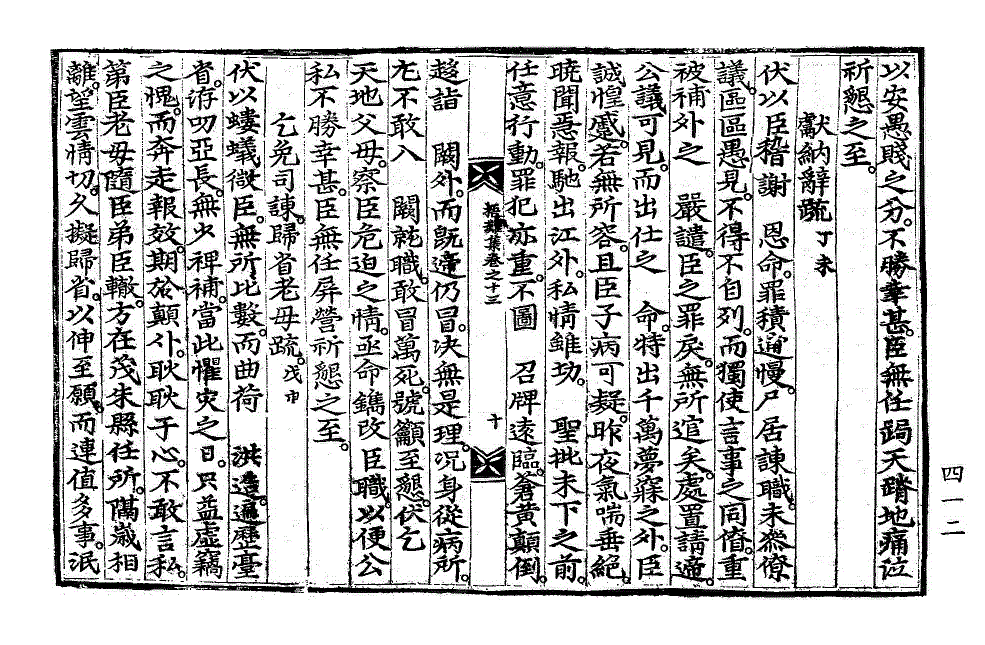 以安愚賤之分。不勝幸甚。臣無任跼天蹐地痛泣
祈懇之至。
獻納辭疏 丁未
伏以臣稽謝 恩命。罪積逋慢。尸居諫職。未叅僚
議。區區愚見。不得不自列。而獨使言事之同僚。重
被補外之 嚴譴。臣之罪戾。無所逭矣。處置請遞。
公議可見。而出仕之 命。特出千萬夢寐之外。臣
誠惶蹙。若無所容。且臣子病可疑。昨夜氣喘垂絕。
曉聞惡報。馳出江外。私情雖切。 聖批未下之前。
任意行動。罪犯亦重。不圖 召牌遠臨。蒼黃顚倒。
集卷之十三 十
趍詣 闕外。而旣違仍冒。决無是理。况身從病所。
尤不敢入 闕就職。敢冒萬死。號籲至懇。伏乞
天地父母。察臣危迫之情。亟命鐫改臣職。以便公
私不勝幸甚。臣無任屛營祈懇之至。
乞免司諫。歸省老母疏。戊申
伏以螻蟻微臣。無所比數。而曲荷 洪造。遍歷臺
省。洊叨亞長。無少裨補。當此懼灾之日。只益虛竊
之愧。而奔走報效。期於顚仆。耿耿于心。不敢言私。
第臣老母。隨臣弟臣轍。方在茂朱縣任所。隔歲相
離。望雲情切。久擬歸省。以伸至願。而連値多事。泯
四一二